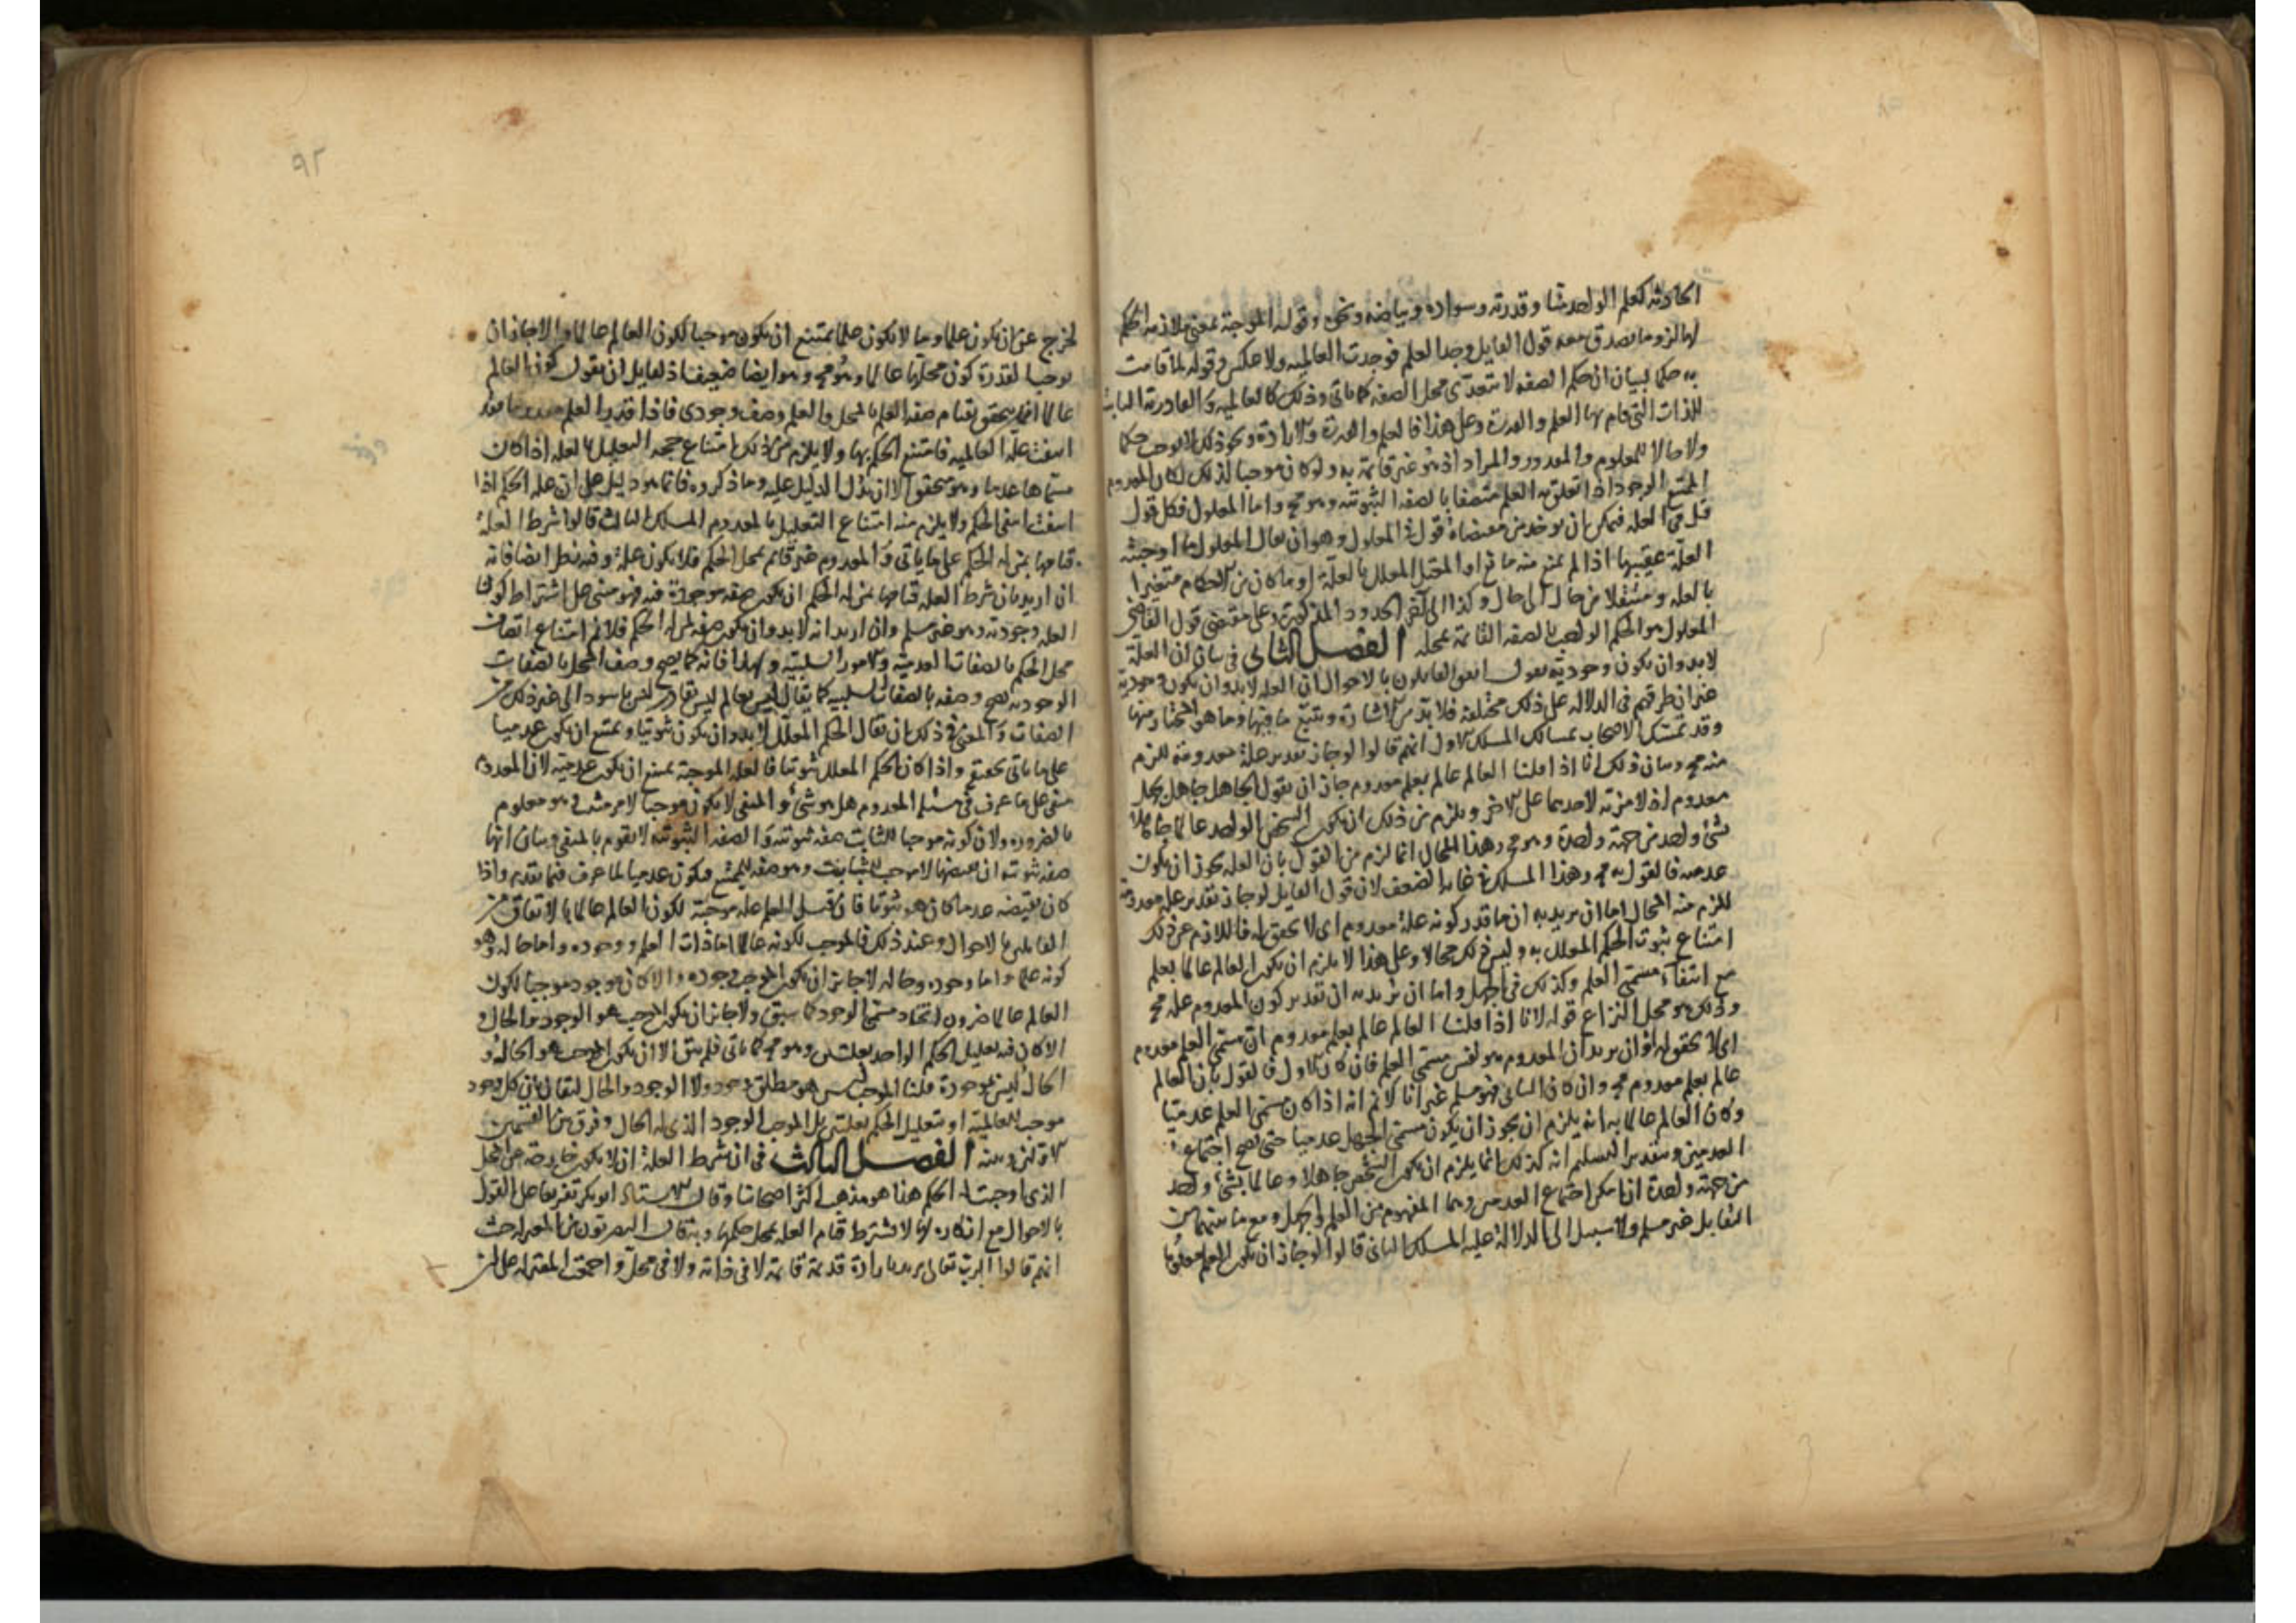 الحادثة كعلم الواحد منا وقدرته وسواده وبياضه ونحوه وقوله الموجبة بمعنى ملازمة الحكم
لها لزوما يصدق معه قول القايل وجد العلم فوجدت العالمية ولا عكس وقوله لما قامت
به حكما لبيان ان حكم الصفة لا يتعدى محل الصفة كما ياتى وذلك كالعالمية والقادرية الثابتة
للذات التى قام بها العلم والقدرة وعلى هذا فالعلم والقدرة والارادة ونحو ذلك لا يوجب حكما
ولا حالا للمعلوم والمقدور والمراد اذ هو غير قائمة به ولو كان موجبا لذلك لكان المعدوم
الممتنع الوجود اذا تعلق به العلم متصفا بالصفة الثبوتية وهو مح واما المعلول فكل قول
قيل فى العلة فيمكن ان يوخذ من مقتضاه قول فى المعلول وهو ان يقال المعلول ما اوجبته
العلة عقيبها اذا لم يمنع منه مانع او المعتل المعلل بالعلة او ما كان من الاحكام متغيرا
بالعلة ومنتقلا من حال الى حال وكذا الى آخر الحدود المذكورة وعلى مقتضى قول القاضى
المعلول هو الحكم الواجب بالصفة القائمة بمحله الفصل الثانى فى بيان ان العلة
لا بد وان يكون وجودية يقول اتفق القايلون بالاحوال ان العلة لا بد وان يكون وجودية
غير ان طرقهم فى الدلالة على ذلك مختلفة فلا بد من الاشارة وتتبع ما فيها وما هو المختار منها
وقد تمسك الاصحاب بمسالك المسلك الاول انهم قالوا لو جاز تقدير علة معدومة للزم
منه مح وبيان ذلك انا اذا قلنا العالم عالم بعلم معدوم جاز ان يقول الجاهل جاهل بجهل
معدوم اذ لا مزية لاحدهما على الآخر ويلزم من ذلك ان يكون الشخص الواحد عالما جاهلا
بشئ واحد من جهة واحدة وهو مح وهذا المحال انما لزم من القول بان العلة يجوز ان يكون
عدمية فالقول به مح وهذا المسلك فى غاية الضعف لان قول القايل لو جاز تقدير علة معدومة
للزم منه المحال اما ان يريد به ان ما قدر كونه علة معدوم اى لا تحقق له فاللازم عن ذلك
امتناع ثبوت الحكم المعلل به وليس ذلك محالا وعلى هذا لا يلزم ان يكون العالم عالما بعلم
مع انتفاء مسمى العلم وكذلك فى الجهل واما ان يريد به ان تقدير كون المعدوم علة مح
وذلك هو محل النزاع قوله لانا اذا قلنا العالم عالم بعلم معدوم ان مسمى العلم معدوم
اى لا تحقق له او ان يريد ان المعدوم هو نفس مسمى العلم فان كان الاول فالقول بان العالم
عالم بعلم معدوم مح وان كان الثانى فهو مسلم غير انا لا نم انه اذا كان مسمى العلم عدميا
وكان العالم عالما به انه يلزم ان يجوز ان يكون مسمى الجهل عدميا حتى يصح اجتماع
العدمين وبتقدير التسليم انه كذلك انما يلزم ان يكون الشخص جاهلا وعالما بشئ واحد
من جهة واحدة ان امكن اجتماع العدمين وهما المفهوم من العلم والجهل ومع ما بينهما من
التقابل غير مسلم ولا سبيل الى الدلالة عليه المسلك الثانى قالوا لو جاز ان يكون العلم معدوما
٩٢
لخرج عن ان يكون علما وما لا يكون علما يمتنع ان يكون موجبا لكون العالم عالما والا لجاز ان
يوجب القدرة كون محلها عالما وهو مح وهو ايضا ضعيف اذ لقايل ان يقول كون العالم
عالما انما يتحقق بقيام صفة العلم بالمحل والعلم وصف وجودى فاذا قدر العلم معدوما فقد
انتفت علة العالمية فامتنع الحكم بها ولا يلزم من ذلك امتناع صحة التعليل بالعلة اذا كان
مسماها عدما وهو متحقق الا ان يدل الدليل عليه وما ذكروه فانما هو دليل على ان علة الحكم اذا
انتفت انتفى الحكم ولا يلزم منه امتناع التعليل بالمعدوم المسلك الثالث قالوا شرط العلة
قيامها بمن له الحكم على ما ياتى والمعدوم غير قائم بمحل الحكم فلا يكون علة وفيه نظر ايضا فانه
ان اريد بان شرط العلة قيامها بمن له الحكم ان يكون صفة موجودة فيه فهو مبنى على اشتراط كون
العلة وجودية وهو غير مسلم وان اريد انه لا بد وان يكون صفة لمن له الحكم فلا نم امتناع اتصاف
محل الحكم بالصفات العدمية والامور السلبية ولهذا فانه كما يصح وصف المحل بالصفات
الوجودية يصح وصفه بالصفات السلبية كما يقال ليس بعالم ليس بقادر ليس باسود الى غير ذلك من
الصفات والمعتمد فى ذلك ان يقال الحكم المعلل لا بد وان يكون ثبوتيا ويمتنع ان يكون عدميا
على ما ياتى تحقيقه واذا كان الحكم المعلل ثبوتيا فالعلة الموجبة يمتنع ان يكون عدمية لان المعدوم
منفى على ما عرف فى مسئلة المعدوم هل هو شئ او المنفى لا يكون موجبا لامر مثبت وهو معلوم
بالضرورة ولان كونه موجبا للثابت صفة ثبوتية والصفة الثبوتية لا يقوم بالمنفى وبيان انها
صفة ثبوتية ان نقيضها لا موجب للثابت وهو صفة للممتنع فيكون عدميا لما عرف فيما تقدم واذا
كان نقيضه عدما كان هو ثبوتيا فان قيل العلم علة موجبة لكون العالم عالما بالاتفاق من
القايلين بالاحوال وعند ذلك فالموجب لكونه عالما اما ذات العلم ووجوده واما حاله وهو
كونه علما واما وجوده وحاله لا جايز ان يكون الموجب وجوده والا كان كل وجود موجبا لكون
العالم عالما ضرورة اتحاد مسمى الوجود كما سبق ولا جايز ان يكون الموجب هو الوجود والحال و
الا كان فيه تعليل الحكم الواحد بعلتين وهو مح كما ياتى فلم يبق الا ان يكون الموجب هو الحال و
الحال ليس موجودة قلنا الموجب ليس هو مطلق وجود ولا الوجود والحال ليقال بان كل وجود
موجب للعالمية او بتعليل الحكم بعلتين بل الموجب الوجود الذى له الحال وفرق بين القسمين
الاولين وبينه الفصل الثالث فى ان شرط العلة ان لا يكون خارجة عن المحل
الذى اوجبت له الحكم هذا هو مذهب اكثر اصحابنا وقال الاستاذ ابو بكر تفريعا على القول
بالاحوال مع انكاره لها لا يشترط قيام العلة بمحل حكمها وبه قال البصريون من المعتزلة حيث
انهم قالوا الرب تعالى مريد بارادة قديمة قائمة لا فى ذاته ولا فى محل واحتجت المعتزلة على ان